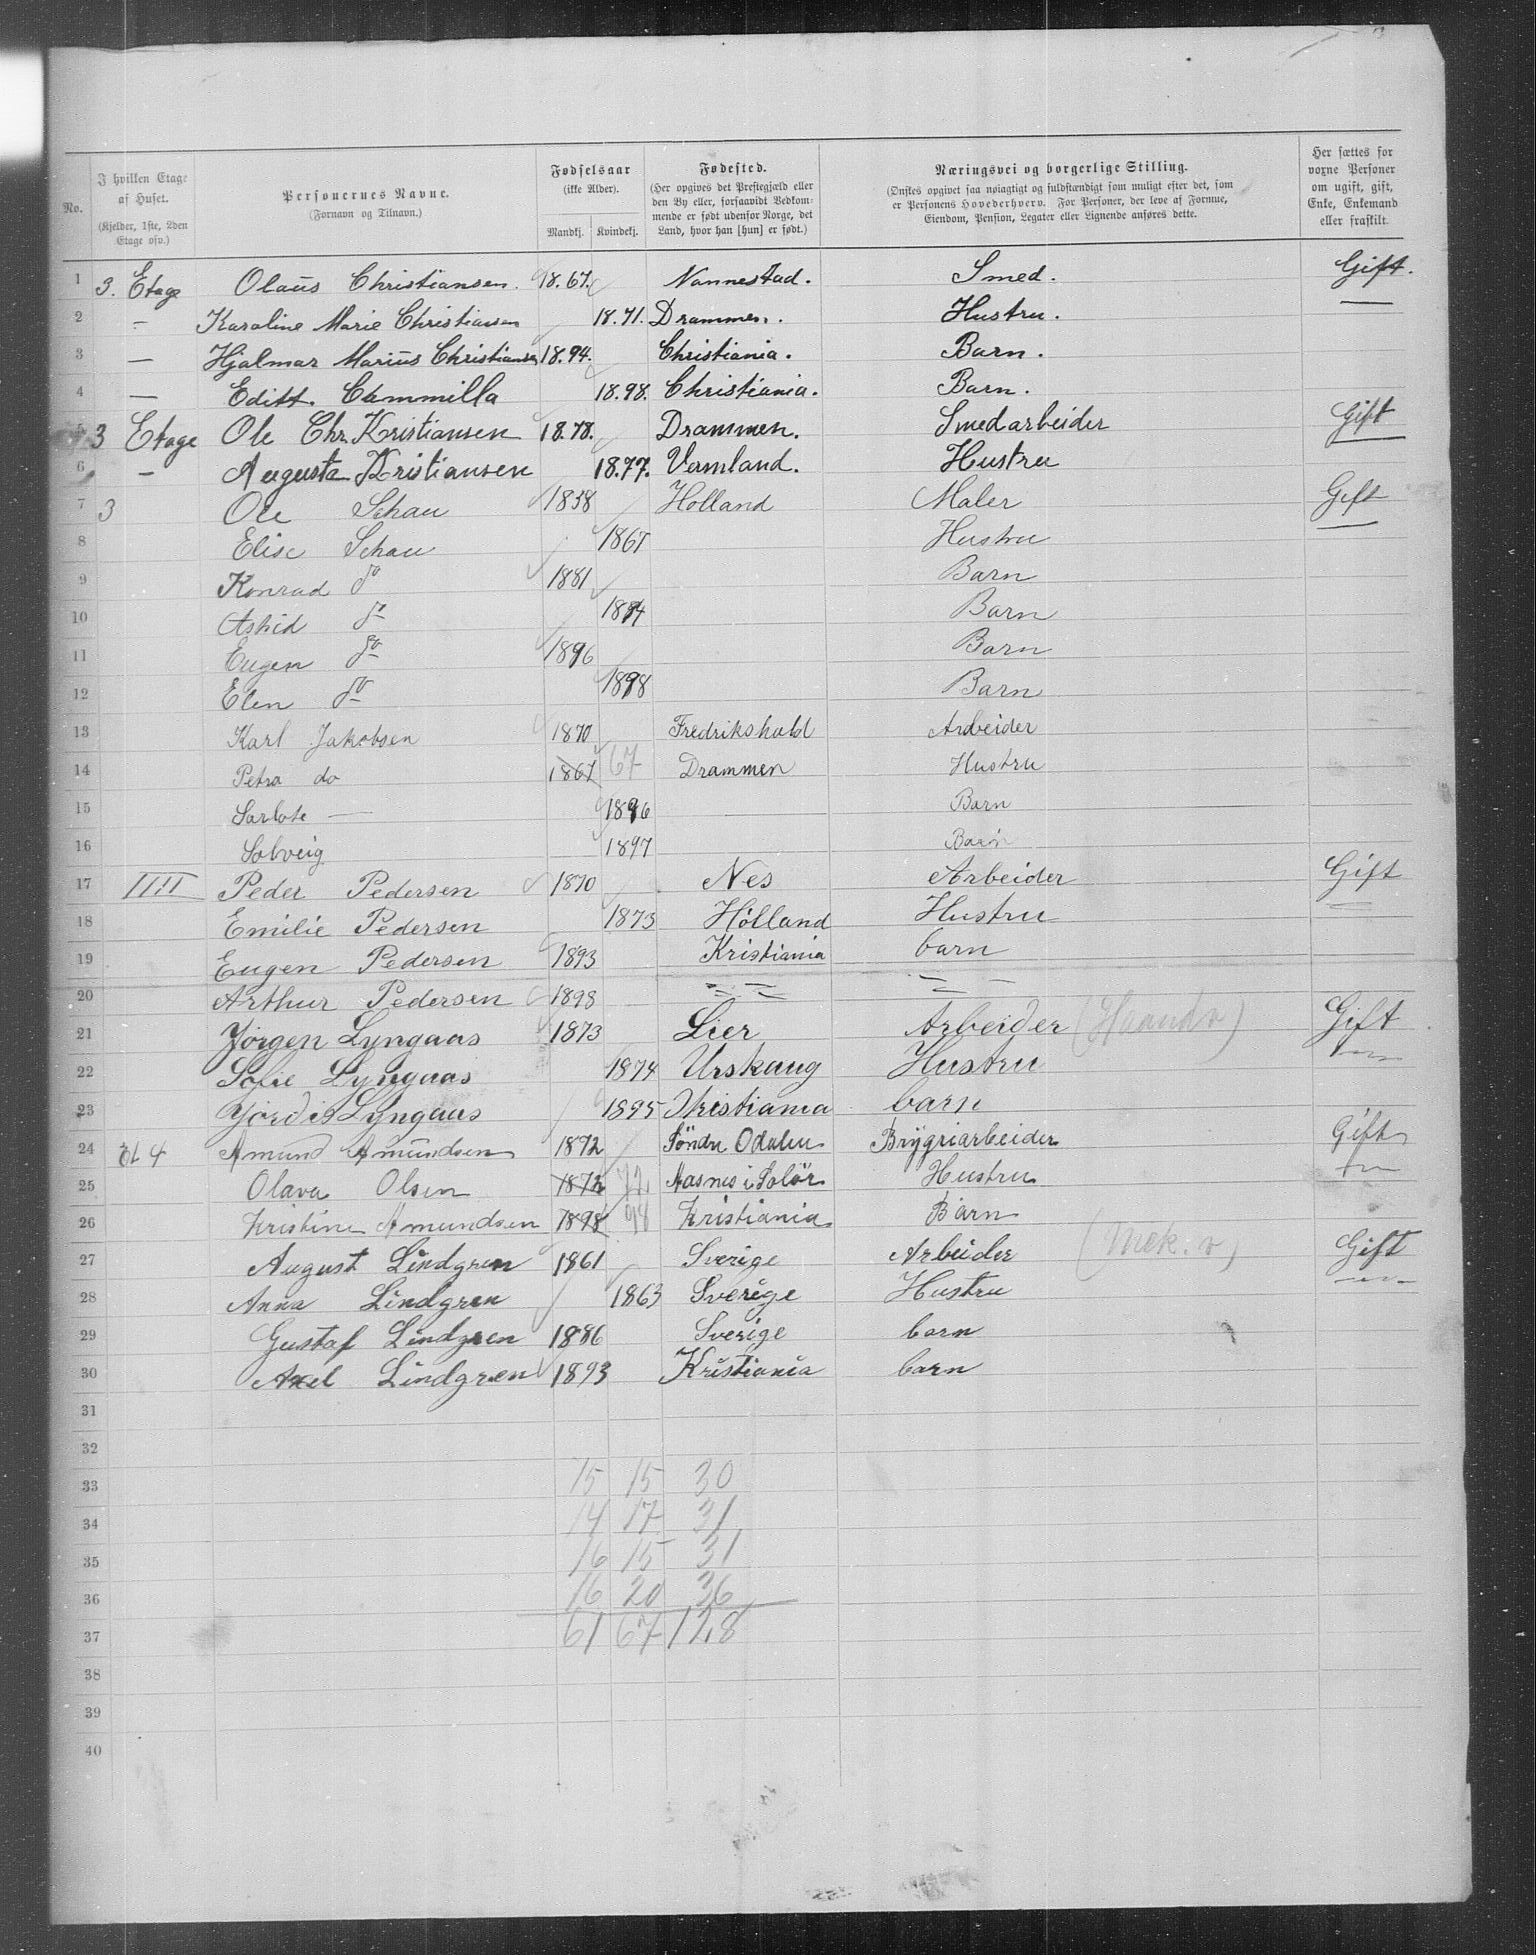 No.
I hvilken Etage af Huset. (Kjelder, 1ste, 2den Etage osv.)
Personernes Navne. (Fornavn og Tilnavn.)
Fødselsaar (ikke Alder).
Mandkj. Kvindekj.
Fødested. (Her opgives det Prestegjæld eller den By eller, forsaavidt Vedkommende er født udenfor Norge, det Land, hvor han [hun] er født.)
Næringsvei og borgerlige Stilling. (Ønskes opgivet saa nøiagtigt og fuldstændigt som muligt efter det, som er Personens Hovederhverv. For Personer, der leve af Formue, Eiendom, Pension, Legater eller Lignende anføres dette.
Her sættes for voxne Personer om ugift, gift, Enke, Enkemand eller fraskilt.
1 3. Etage Olaus Christiansen. 18.67. Nannestad. Smed. Gift.
2 — Karoline Marie Christiansen 18.71. Drammen. Hustru. —
3 — Hjalmar Marius Christiansen 18.94. Christiania. Barn.
4 — Editt. Cammilla 18.98. Christiania. Barn.
5 3 Etage Ole Chr. Kristiansen 18.78. Drammen. Smedarbeider Gift
6 — Augusta Kristiansen 18.77. Vermland. Hustru
7 3 Ole Schau 1838 Holland Maler Gift
8 Elise Schau 1867 Hustru
9 Konrad do 1881 Barn
10 Astrid do 1894 Barn
11 Eugen do 1896 Barn
12 Elen do 1898 Barn
13 Karl Jakobsen 1870 Fredrikshald Arbeider
14 Petra do 1867 67 Drammen Hustru
15 Sarlote — 1896 Barn
16 Solveig 1897 Barn
17 IIII Peder Pedersen 1870 Nes Arbeider Gift
18 Emilie Pedersen 1873 Hölland Hustru
19 Eugen Pedersen 1893 Kristiania barn
20 Arthur Pedersen 1898
21 Jørgen Lyngaas 1873 Lier Arbeider (Haandv) Gift
22 Sofie Lyngaas 1874 Urskaug Hustru
23 Yordis Lyngaas 1895 Kristiania barn
24 Et 4 Amund Amundsen 1872 Söndre Odalen Brygriarbeider Gift
25 Olava Olsen 1872 72 Aasnes i Solör Hustru
26 Kristine Amundsen 1898 98 Kristiania Barn
27 August Lindgren 1861 Sverige Arbeider (Mek. v) Gift
28 Anna Lindgren 1863 Sverige Hustru
29 Gustaf Lindgren 1886 Sverige barn
30 Axel Lindgren 1893 Kristiania barn
31
32
33 15 15 30
34 14 17 31
35 16 15 31
36 16 20 36
37 61 67 128
38
39
40